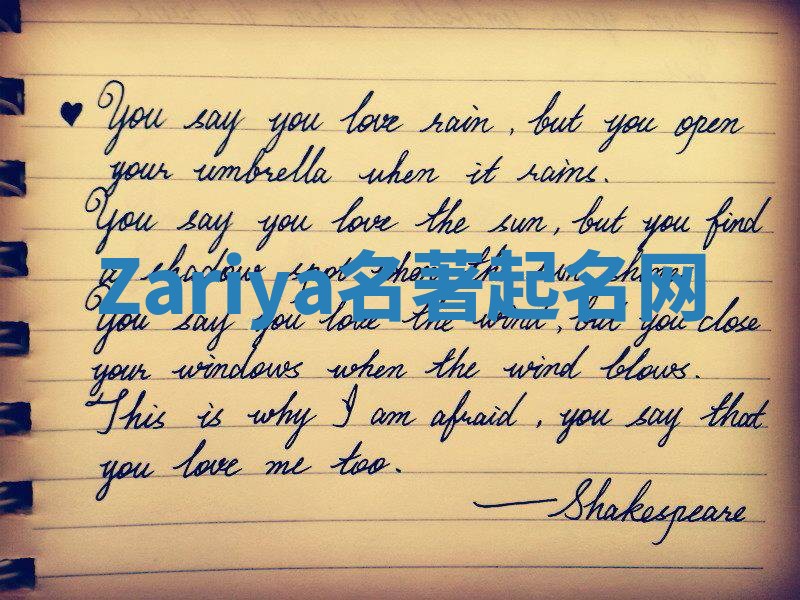 ♥ You say you love rain, but you open
your umbrella when it rains.
You say you love the sun, but you find
a shadow spot when the sun shines.
Zariya名著起名网
You say you love the wind, but you close
your windows when the wind blows.
This is why I am afraid, you say that
you love me too.
—Shakespeare